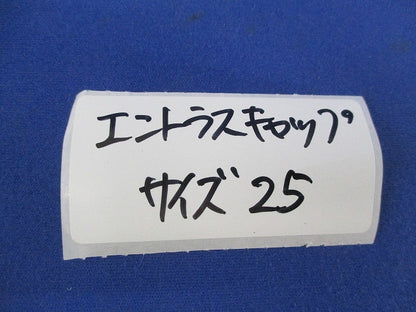 エントラスキャップ
サイズ 25